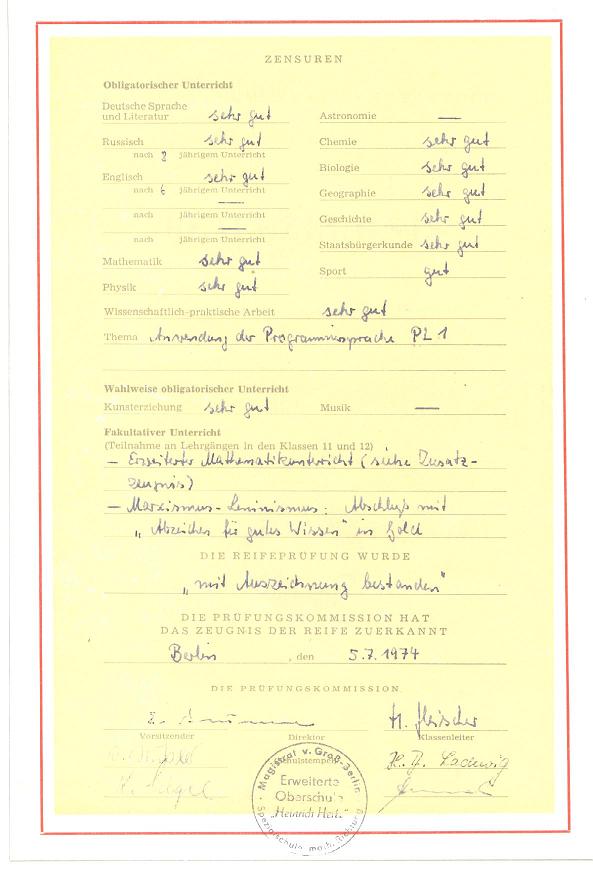 ZENSUREN
Obligatorischer Unterricht
Deutsche Sprache
und Literatur sehr gut
Russisch sehr gut
nach 8 jährigem Unterricht
Englisch sehr gut
nach 6 jährigem Unterricht
—
nach jährigem Unterricht
—
nach jährigem Unterricht
Mathematik sehr gut
Physik sehr gut
Astronomie —
Chemie sehr gut
Biologie sehr gut
Geographie sehr gut
Geschichte sehr gut
Staatsbürgerkunde sehr gut
Sport gut
Wissenschaftlich-praktische Arbeit sehr gut
Thema Anwendung der Programmiersprache PL 1
Wahlweise obligatorischer Unterricht
Kunsterziehung sehr gut Musik —
Fakultativer Unterricht
(Teilnahme an Lehrgängen in den Klassen 11 und 12)
– Erweiterter Mathematikunterricht (siehe Zusatz-
zeugnis)
– Marxismus-Leninismus: Abschluß mit
„Abzeichen für gutes Wissen" in Gold
DIE REIFEPRÜFUNG WURDE
„mit Auszeichnung bestanden"
DIE PRÜFUNGSKOMMISSION HAT
DAS ZEUGNIS DER REIFE ZUERKANNT
Berlin , den 5.7.1974
DIE PRÜFUNGSKOMMISSION
H. Fleischer
Vorsitzender Direktor Klassenleiter
Schulstempel
Ladewig
Magistrat v. Groß-Berlin
Erweiterte
Oberschule
"Heinrich Hertz"
Spezialschule math. Richtung